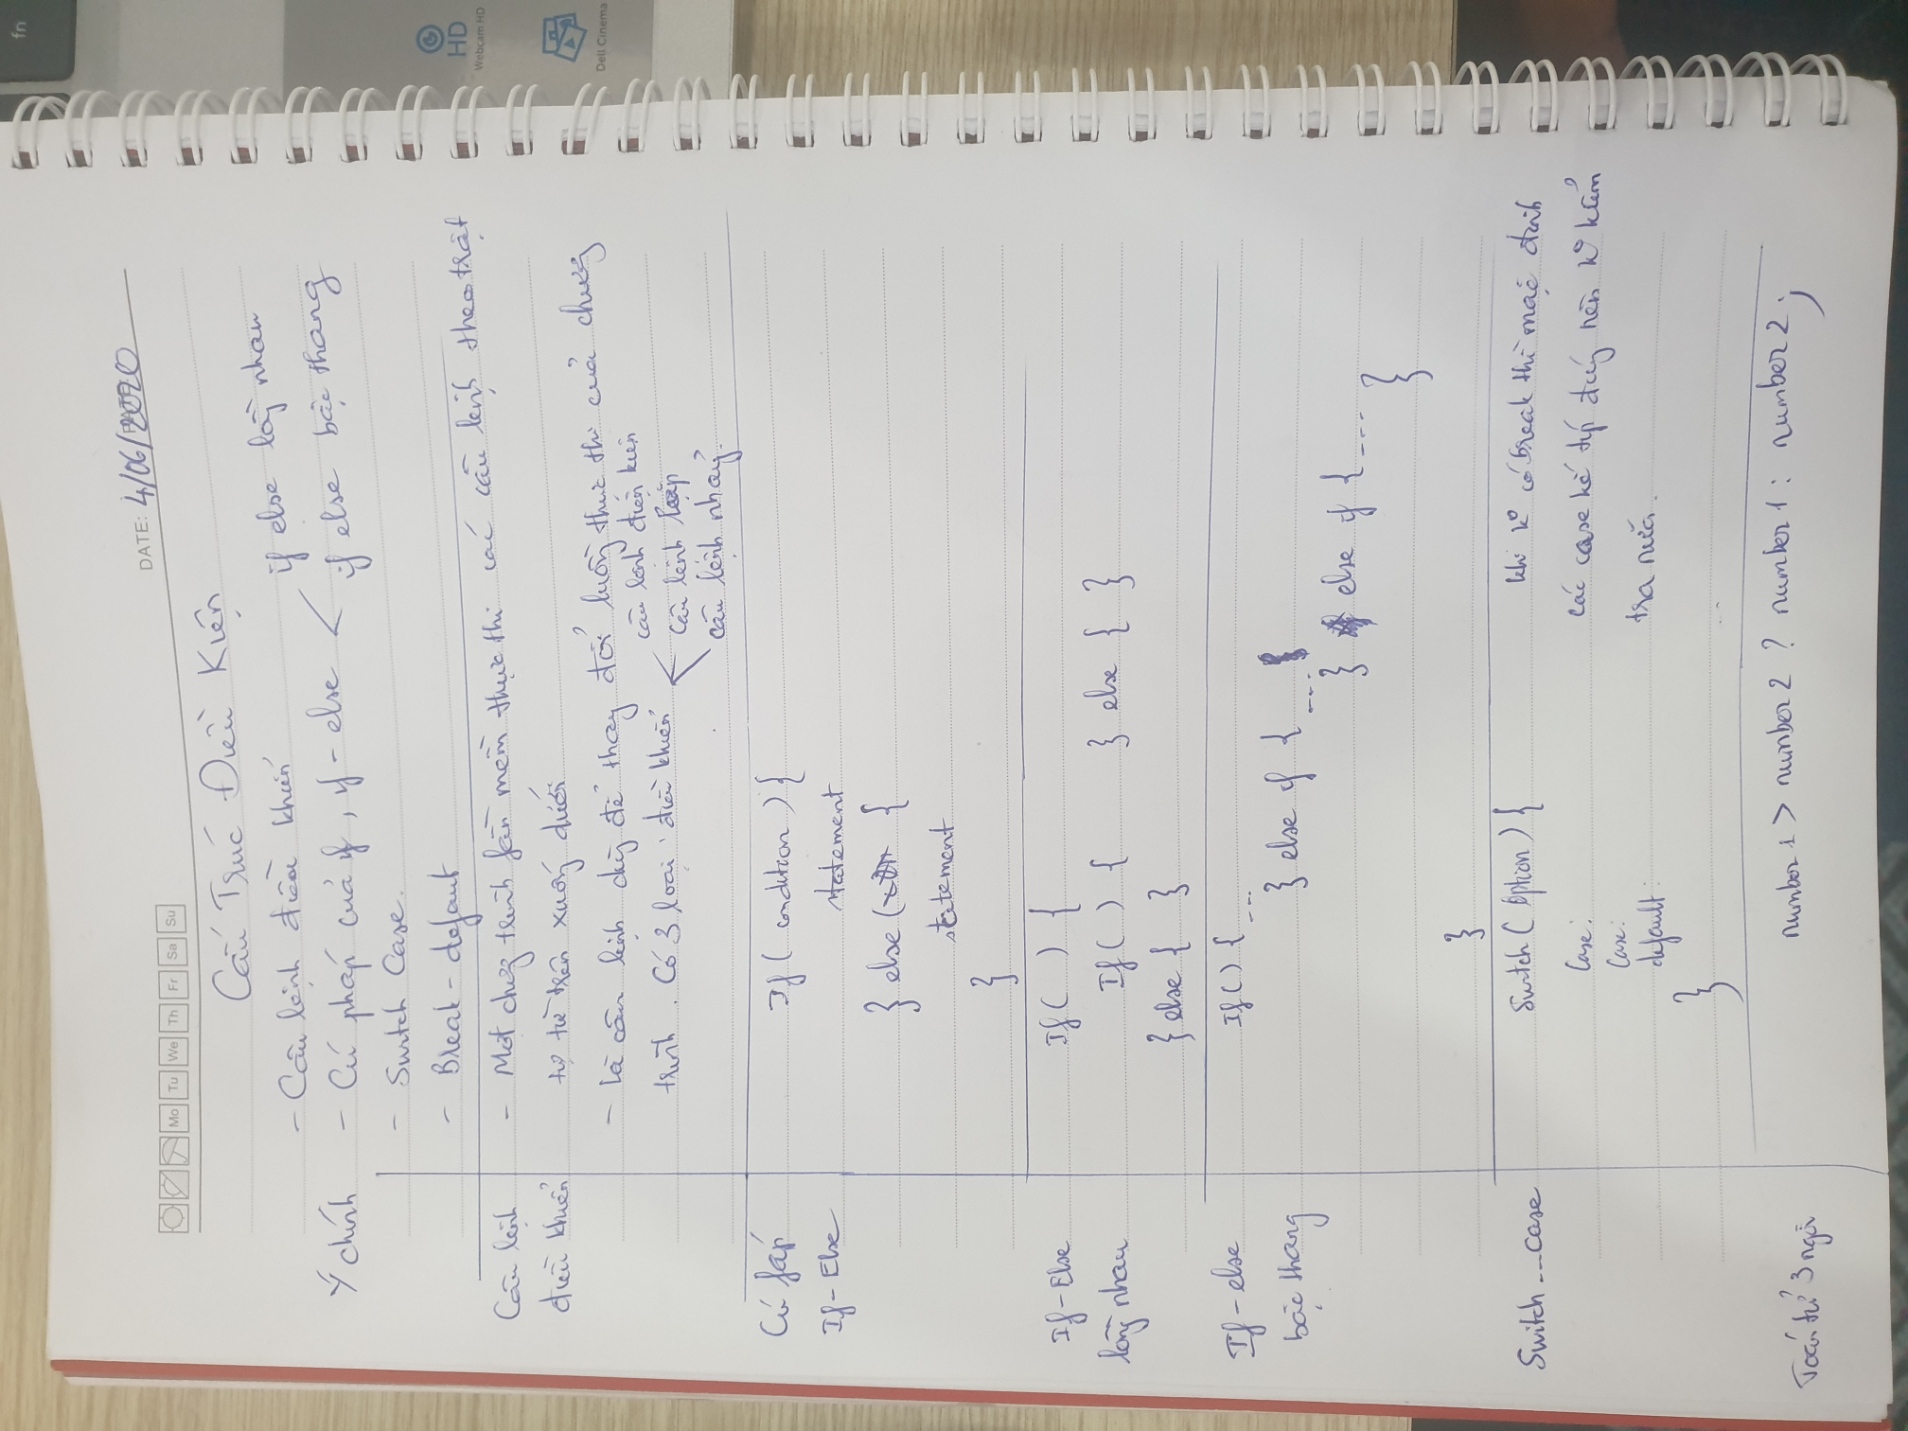 fn
DATE: 4/06/2020
Mo Tu We Th Fr Sa Su
Cấu Trúc Điều Kiện
- Câu lệnh điều khiển
Ý chính - Cú pháp của if, if-else < if else lồng nhau
if else bậc thang
- Switch Case.
- Break - defaut
Câu lệnh điều khiển
- Một chương trình fần mềm thực thi các câu lệnh theo trật
tự từ trên xuống dưới
- Là câu lệnh dùng để thay đổi luồng thực thi của chương
trình. Có 3 loại điều khiển < câu lệnh điều kiện
câu lệnh lặp
câu lệnh nhảy.
Cú fáp
If-Else
If( condition ) {
statement
} else ( {
statement
}
If-Else
lồng nhau
If( ) {
If( ) { } else { }
} else { }
If-else
bậc thang
If() { ...
} else if { ...
} else if { ...
}
}
Switch ... case
Switch ( Option ) {
Case:
Case:
default:
}
khi ko có break thì mặc định
các case kế tiếp đúng nên ko kiểm
tra nữa.
Toán tử 3 ngôi
number1 > number2 ? number1 : number2;
HD
Webcam HD
Dell Cinema